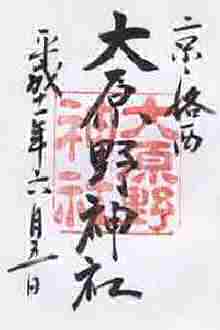 京・洛西
大原野神社
大原野
神社
平成十一年六月五日